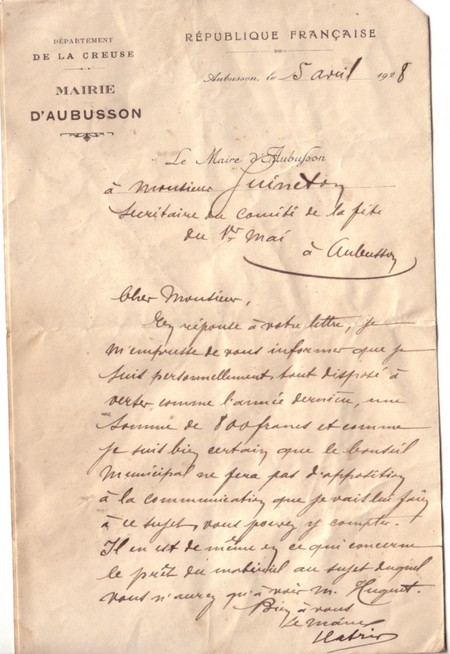 DÉPARTEMENT
DE LA CREUSE
MAIRIE
D'AUBUSSON
RÉPUBLIQUE FRANÇAISE
Aubusson, le 5 avril 1928
Le Maire d'Aubusson
à Monsieur
Secrétaire du Comité de la fête
du 1er Mai
à Aubusson
Cher Monsieur,
En réponse à votre lettre, je
m'empresse de vous informer que je
suis personnellement tout disposé à
verser comme l'année dernière, une
somme de 800 francs et comme
je suis bien certain que le Conseil
Municipal ne fera pas d'opposition
à la communication que je vais lui faire
à ce sujet, vous pouvez y compter.
Il en est de même en ce qui concerne
le prêt du matériel au sujet duquel
vous n'aurez qu'à voir M. Huguet.
Bien à vous
Le Maire